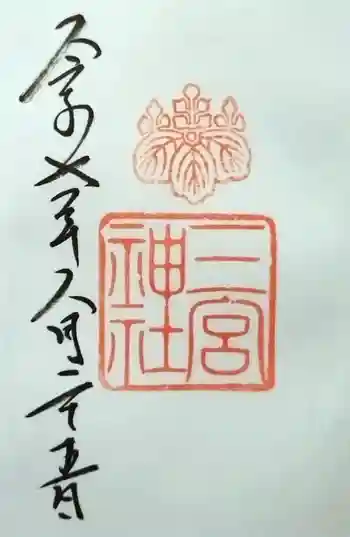 二宮
神社
令和七年八月二十五日